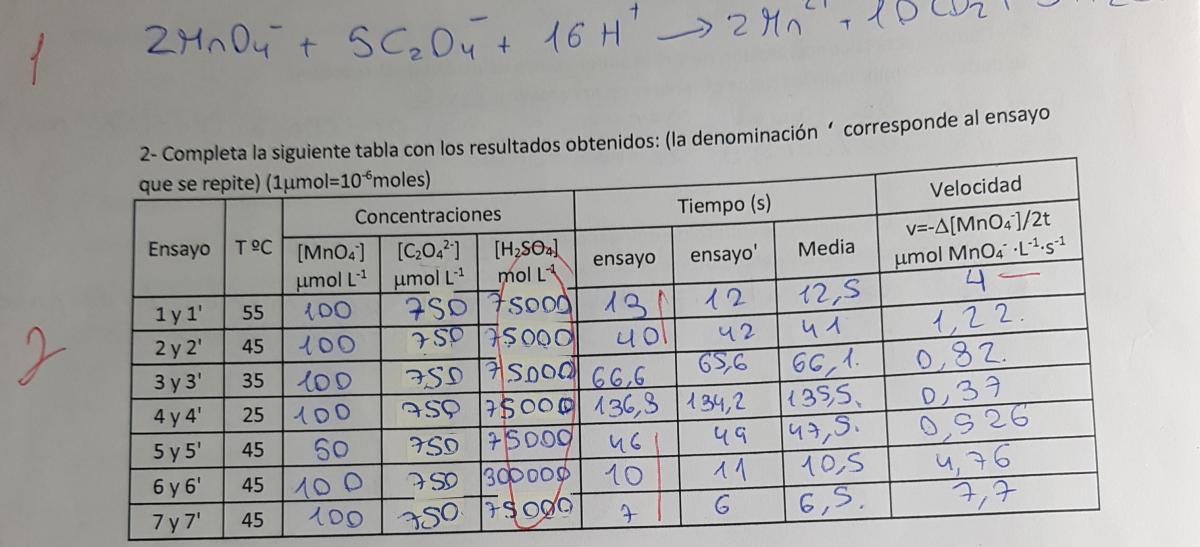 1
2MnO₄⁻ + 5C₂O₄⁻ + 16H⁺ → 2Mn²⁺ + 10CO₂
2- Completa la siguiente tabla con los resultados obtenidos: (la denominación ‘ corresponde al ensayo
que se repite) (1µmol=10⁻⁶moles)
Ensayo T ºC Concentraciones Tiempo (s) Velocidad
[MnO₄⁻] µmol L⁻¹ [C₂O₄²⁻] µmol L⁻¹ [H₂SO₄] mol L⁻¹ ensayo ensayo' Media v=-Δ[MnO₄⁻]/2t µmol MnO₄⁻ ·L⁻¹·s⁻¹
1 y 1' 55 100 750 75000 13 12 12,5 4
2 y 2' 45 100 750 75000 40 42 41 1,22.
2
3 y 3' 35 100 750 75000 66,6 65,6 66,1. 0,82.
4 y 4' 25 100 750 75000 136,3 134,2 135,5. 0,37
5 y 5' 45 50 750 75000 46 49 47,5. 0,526
6 y 6' 45 100 750 300000 10 11 10,5 4,76
7 y 7' 45 100 750 75000 7 6 6,5. 7,7